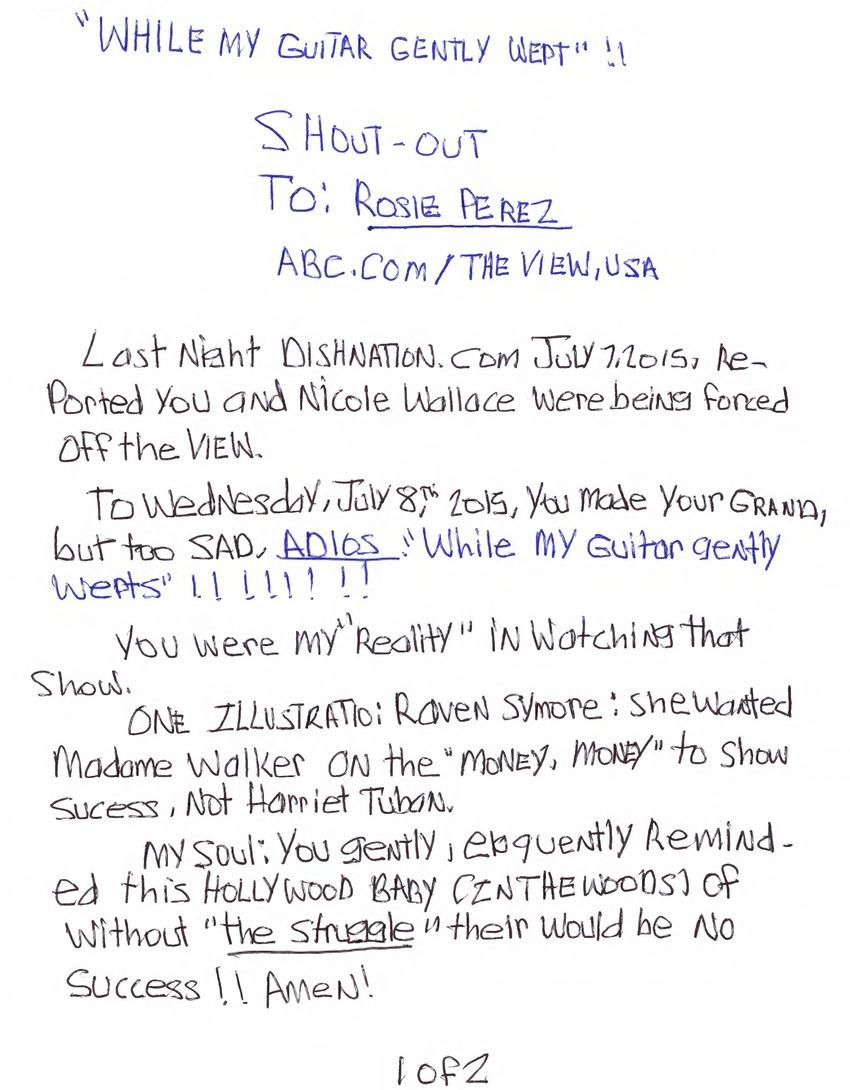 "WHILE MY GUITAR GENTLY WEPT" !!
SHOUT-OUT
TO: ROSIE PEREZ
ABC.COM/THE VIEW, USA
Last Night DISHNATION.COM JULY 7, 2015, Re-
Ported You and Nicole Wallace were being forced
off the VIEW.
To Wednesday, July 8,th 2015, You made Your GRAND,
but too SAD, ADIOS: "While MY Guitar gently
Wepts" !! !!!! !!
You were my "Reality" in Watching that
Show.
ONE ILLUSTRATIO: Raven Symore: She Wanted
Madame Walker ON the "MONEY, MONEY" to Show
Sucess, Not Harriet Tuban.
My Soul: You gently, eloquently Remind-
ed this HOLLYWOOD BABY (INTHEWOODS) of
Without "the struggle" their Would be No
Success !! Amen!
1 of 2